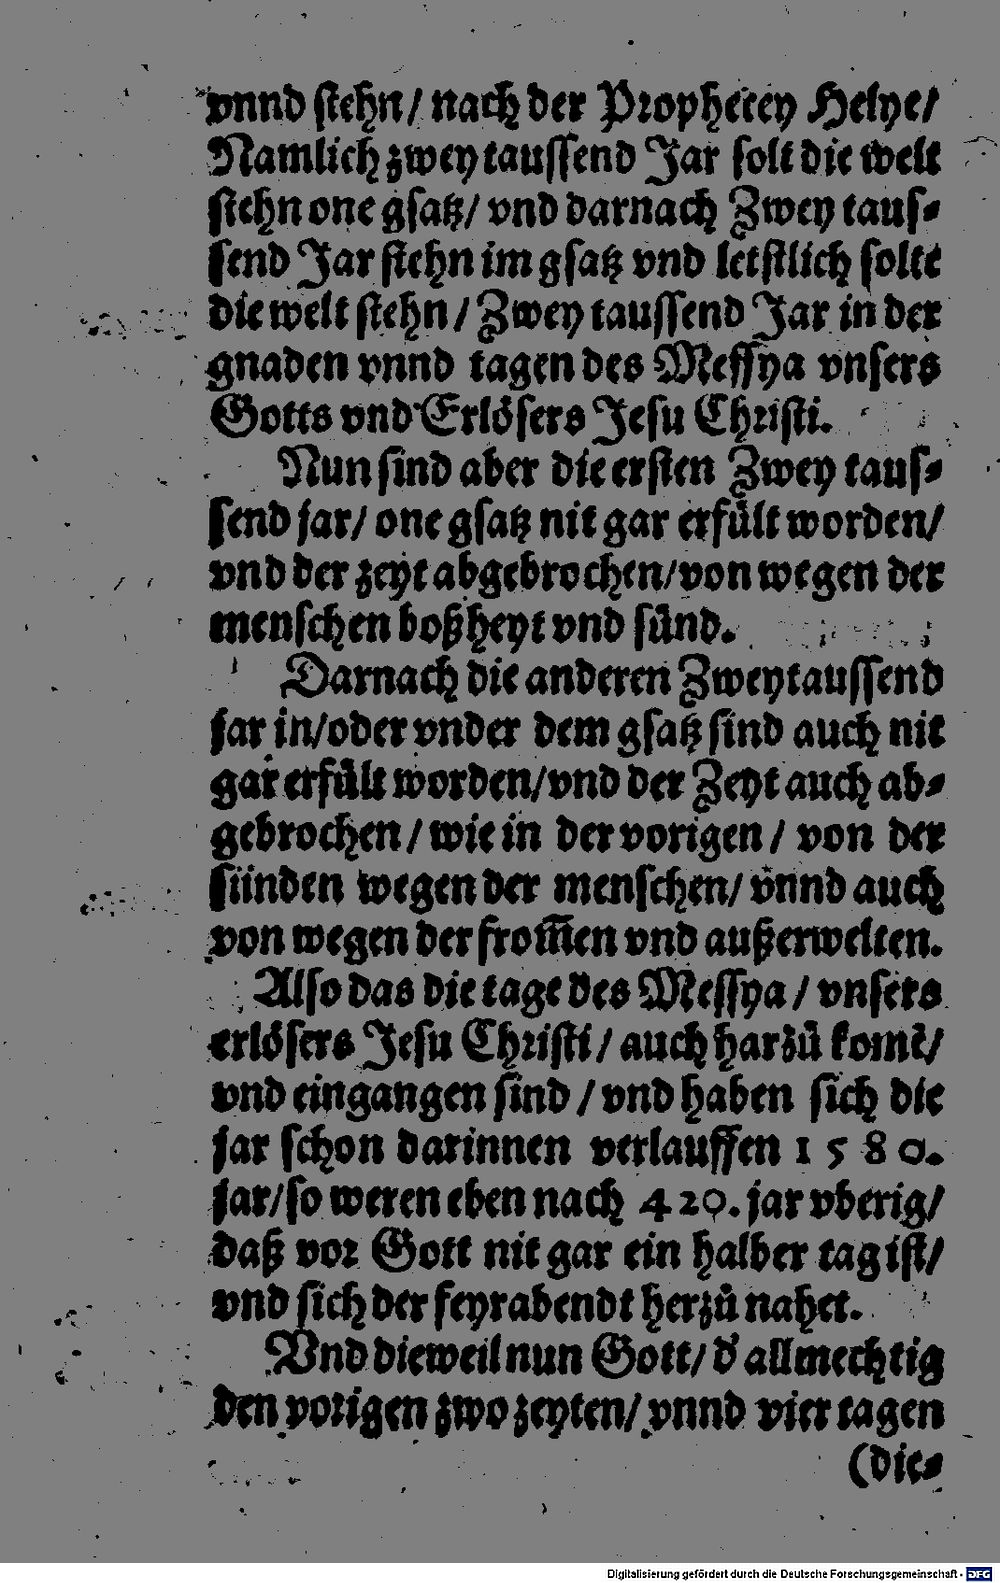 vnnd stehn/ nach der Prophecey Helye/
Namlich zwey taussend Jar solt die welt
stehn one gsatz/ vnd darnach Zwey taus-
send Jar stehn im gsatz vnd letstlich solte
die welt stehn / Zwey taussend Jar in der
gnaden vnnd tagen des Messya vnsers
Gotts vnd Erlösers Jesu Christi.
Nun sind aber die ersten Zwey taus-
send jar/ one gsatz nit gar erfült worden/
vnd der zeyt abgebrochen/von wegen der
menschen boßheyt vnd sünd.
Darnach die anderen Zweytaussend
jar in/oder vnder dem gsatz sind auch nit
gar erfült worden/vnd der Zeyt auch ab-
gebrochen / wie in der vorigen / von der
sünden wegen der menschen/ vnnd auch
von wegen der from̃en vnd außerwelten.
Also das die tage des Messya / vnsers
erlösers Jesu Christi / auch harzů komẽ/
vnd eingangen sind / vnd haben sich die
jar schon darinnen verlauffen 1580.
jar/so weren eben nach 420. jar vberig/
daß vor Gott nit gar ein halber tag ist/
vnd sich der feyrabendt herzů nahet.
Vnd dieweil nun Gott/ d' allmechtig
den vorigen zwo zeyten/ vnnd vier tagen
(die-
Digitalisierung gefördert durch die Deutsche Forschungsgemeinschaft - DFG